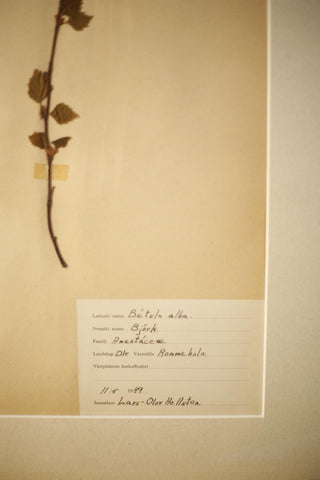 Latinskt namn Bétula alba.
Svenskt namn Björk.
Familj Amentáceæ.
Landskap Dlr. Växtställe Rommeholn.
Växtplatsens beskaffenhet
11/5 1949
Insamlare Lars-Olov Hellsten.